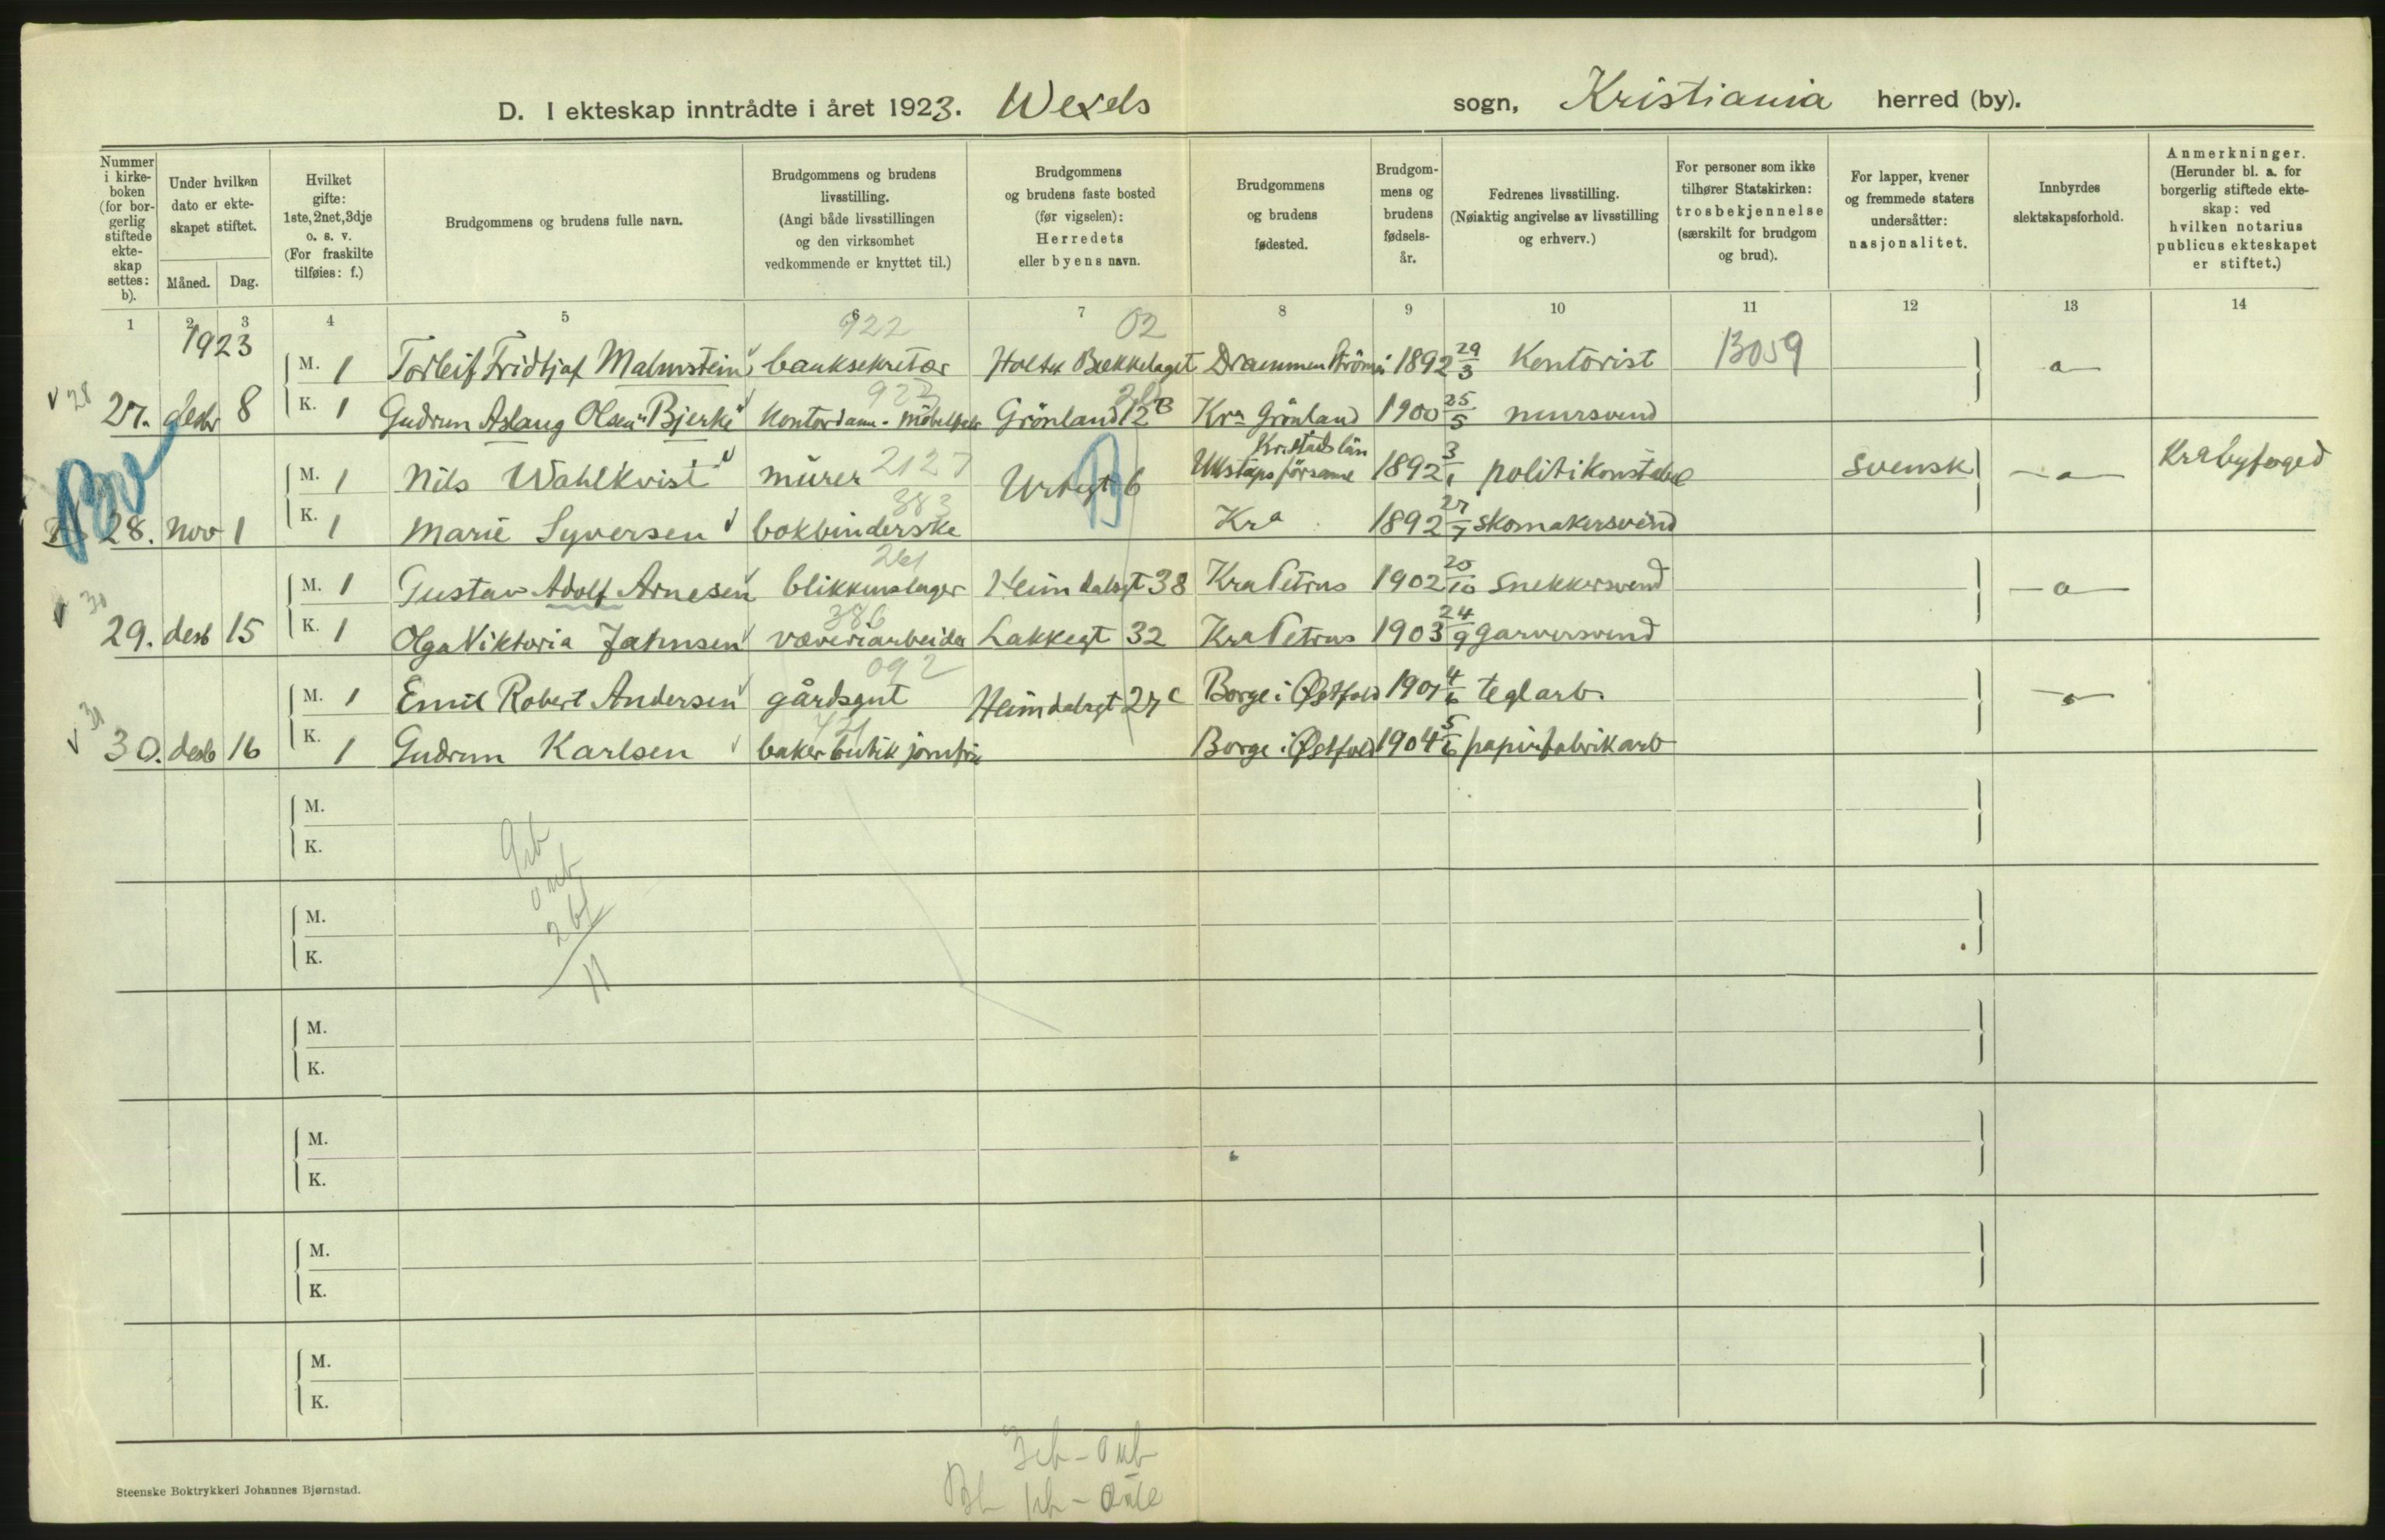 D. I ekteskap inntrådte i året 1923. Wexels sogn, Kristiania herred (by).
Nummer i kirkeboken (for borgerlig stiftede ekteskap settes: b).
Under hvilken dato er ekteskapet stiftet.
Måned. Dag.
Hvilket gifte: 1ste, 2net, 3dje o. s. v. (For fraskilte tilføies: f.)
Brudgommens og brudens fulle navn.
Brudgommens og brudens livsstilling. (Angi både livsstillingen og den virksomhet vedkommende er knyttet til.)
Brudgommens og brudens faste bosted (før vigselen): Herredets eller byens navn.
Brudgommens og brudens fødested.
Brudgommens og brudens fødselsår.
Fedrenes livsstilling. (Nøiaktig angivelse av livsstilling og erhverv.)
For personer som ikke tilhører Statskirken: trosbekjennelse (særskilt for brudgom og brud).
For lapper, kvener og fremmede staters undersåtter: nasjonalitet.
Innbyrdes slektskapsforhold.
Anmerkninger. (Herunder bl. a. for borgerlig stiftede ekteskap: ved hvilken notarius publicus ekteskapet er stiftet.)
1 2 3 4 5 6 7 8 9 10 11 12 13 14
1923 922 02
M. 1 Torleif Fridtjof Malmstein banksekretær Bekkelaget Drammen 1892 29/3 Kontorist 13059 - a -
28 923
27. desbr 8 K. 1 Gudrun Aslaug Olsen Bjerke Kontordame Grönland 12 B Kra Grönland 1900 25/5 mursvend
Kristiads län
M. 1 Nils Wahlkvist murer 2127 Urtegt 6 1892 3/1 politikonstabel Svensk - a - Kra byfoged
383
28. nov 1 K. 1 Marie Syversen bokbinderske Kra 1892 27/7 skomakersvend
261
M. 1 Gustav Adolf Arnesen blikkenslager Heimdalsgt 38 Kra Petrus 1902 20/10 Snekkersvend - a -
30 386
29. desb 15 K. 1 Olga Viktoria Jahnsen væveriarbeider Lakkegt 32 Kra Petrus 1903 24/9 garversvend
092
M. 1 Emil Robert Andersen gårdsgut Heimdalsgt 27 c Borge i Østfold 1901 4/6 teglarb. - a -
30. desb 16 K. 1 Gudrun Karlsen baker butik jomfru Borge i Østfold 1904 5/6 papirfabrikarb
M.
K.
M.
K.
M.
K.
M.
K.
M.
K.
M.
K.
Steenske Boktrykkeri Johannes Bjørnstad.